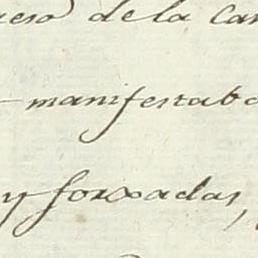 ueso de la Can
manifestaba
y forxadas,